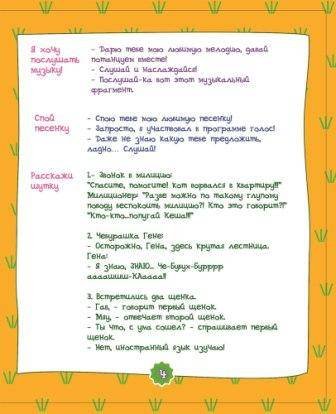 Я хочу
послушать
музыку!
- Дарю тебе мою любимую мелодию, давай
потанцуем вместе!
- Слушай и наслаждайся!
- Послушай-ка вот этот музыкальный
фрагмент.
Спой
песенку
- Спою тебе мою любимую песенку!
- Запросто, я участвовал в программе голос!
- Даже не знаю какую тебе предложить,
ладно... Слушай!
Расскажи
шутку
1.- Звонок в милицию:
"Спасите, помогите! Кот ворвался в квартиру!!!"
Милиционер: "Разве можно по такому глупому
поводу беспокоить милицию?! Кто это говорит?!"
"Кто-кто...попугай Кеша!!!"
2. Чебурашка Гене:
- Осторожно, Гена, здесь крутая лестница.
Гена:
- Я знаю, ЗНАЮ... Че-Бурух-Бурррр
аааашиш-Клаааа!!
3. Встретились два щенка.
- Гав, - говорит первый щенок.
- Мяу, - отвечает второй щенок.
- Ты что, с ума сошел? - спрашивает первый
щенок.
- Нет, иностранный язык изучаю!
4